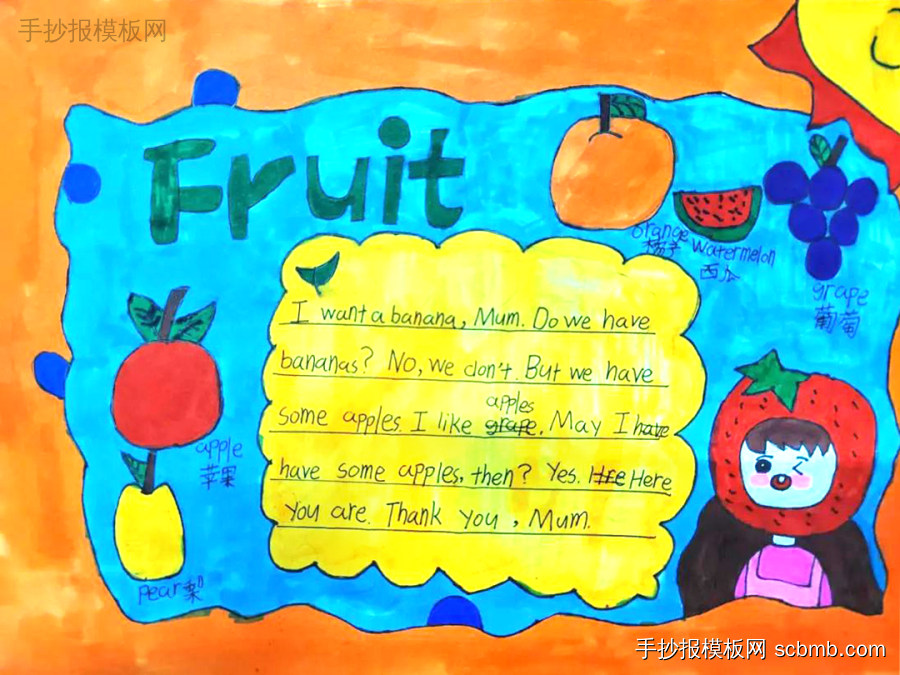 手抄报模板网
Fruit
orange
橘子
watermelon
西瓜
grape
葡萄
I want a banana, Mum. Do we have
bananas? No, we don't. But we have
apples
some apples. I like grape. May I have
have some apples, then? Yes. Hre Here
you are. Thank you, Mum.
apple
苹果
pear 梨
手抄报模板网 scbmb.com